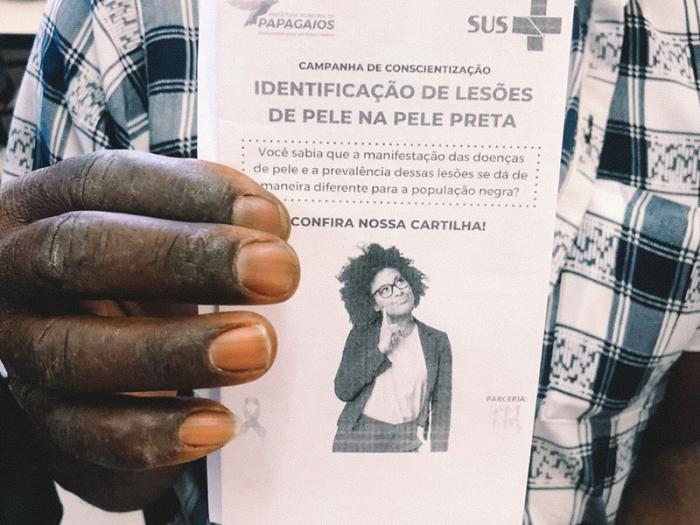 PREFEITURA MUNICIPAL DE
PAPAGAIOS
SUS
CAMPANHA DE CONSCIENTIZAÇÃO
IDENTIFICAÇÃO DE LESÕES
DE PELE NA PELE PRETA
Você sabia que a manifestação das doenças
de pele e a prevalência dessas lesões se dá de
maneira diferente para a população negra?
CONFIRA NOSSA CARTILHA!
PARCERIA: